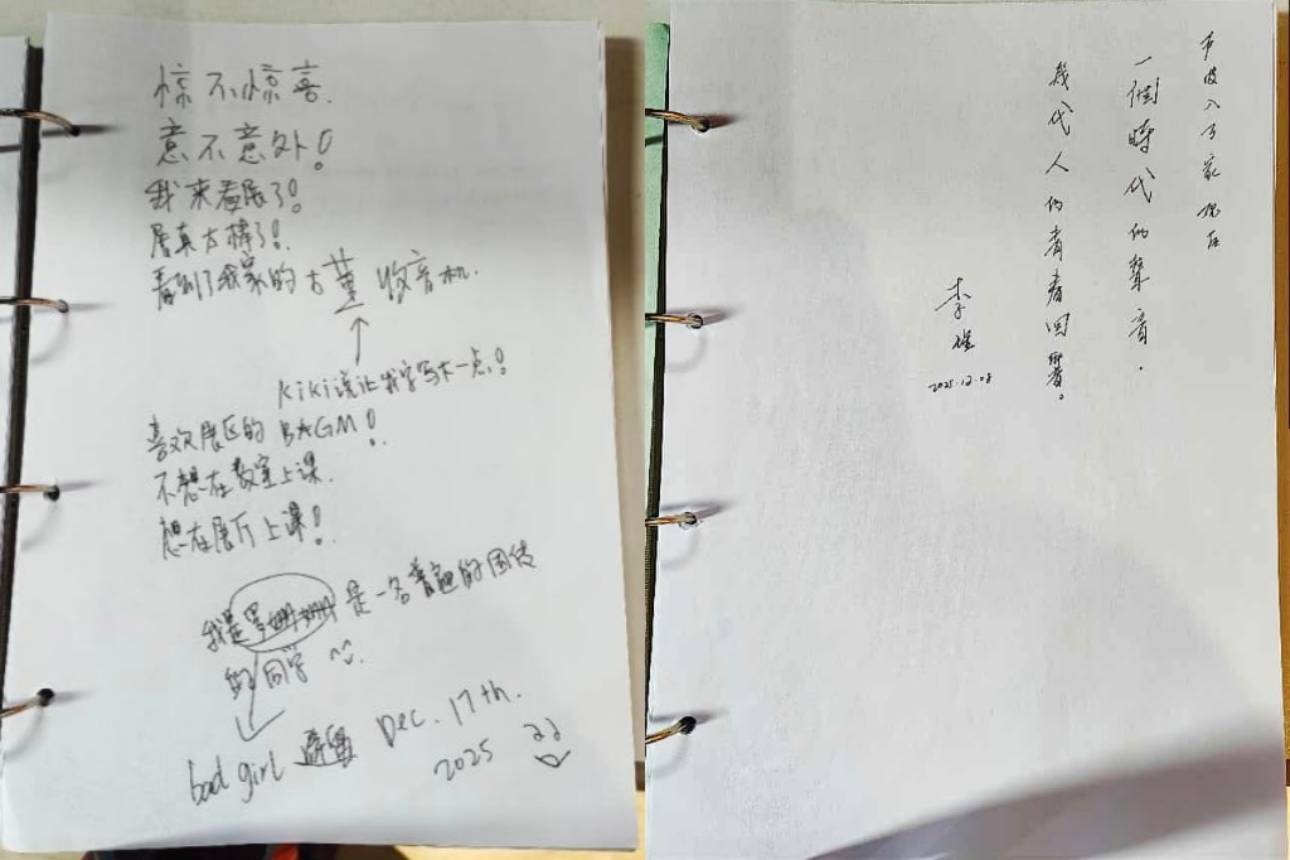 惊不惊喜.
意不意外!
我来看展了!
展真太棒了!
看到了我家的古董收音机.
kiki说让我字写大一点!
喜欢展区的 BAGM!
不想在教室上课.
想在展厅上课!
我是罗姗姗是一名普通的国传
的同学
bad girl Dec. 17th.
2025
一個時代的聲音.
幾代人的青春回響。
李
2025.12.08